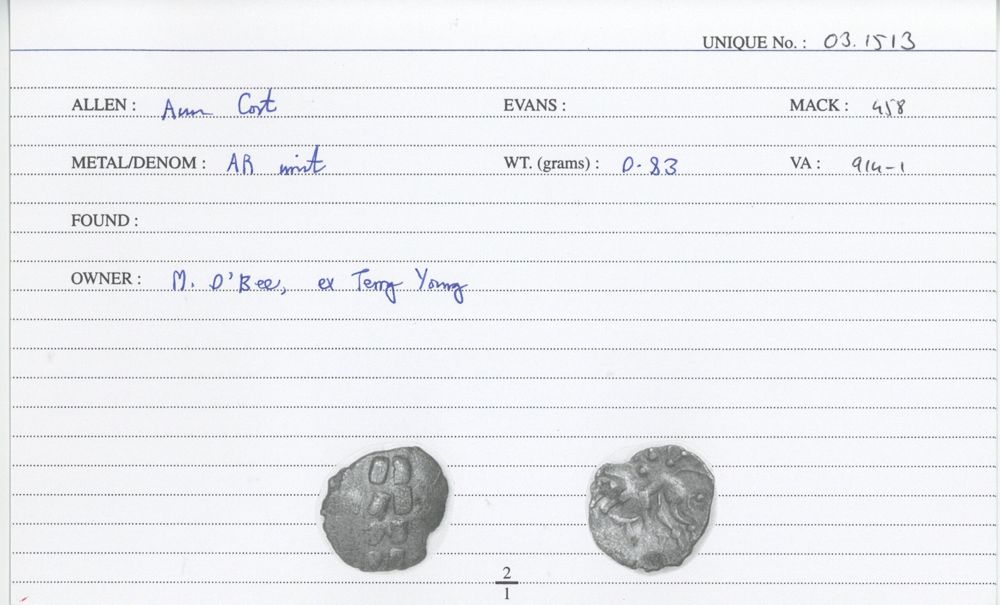 UNIQUE No. : 03.1513
ALLEN : Aun Cost EVANS : MACK : 458
METAL/DENOM : AR unit WT. (grams) : 0.83 VA : 914-1
FOUND :
OWNER : M. O'Bee, ex Terry Young
2
1